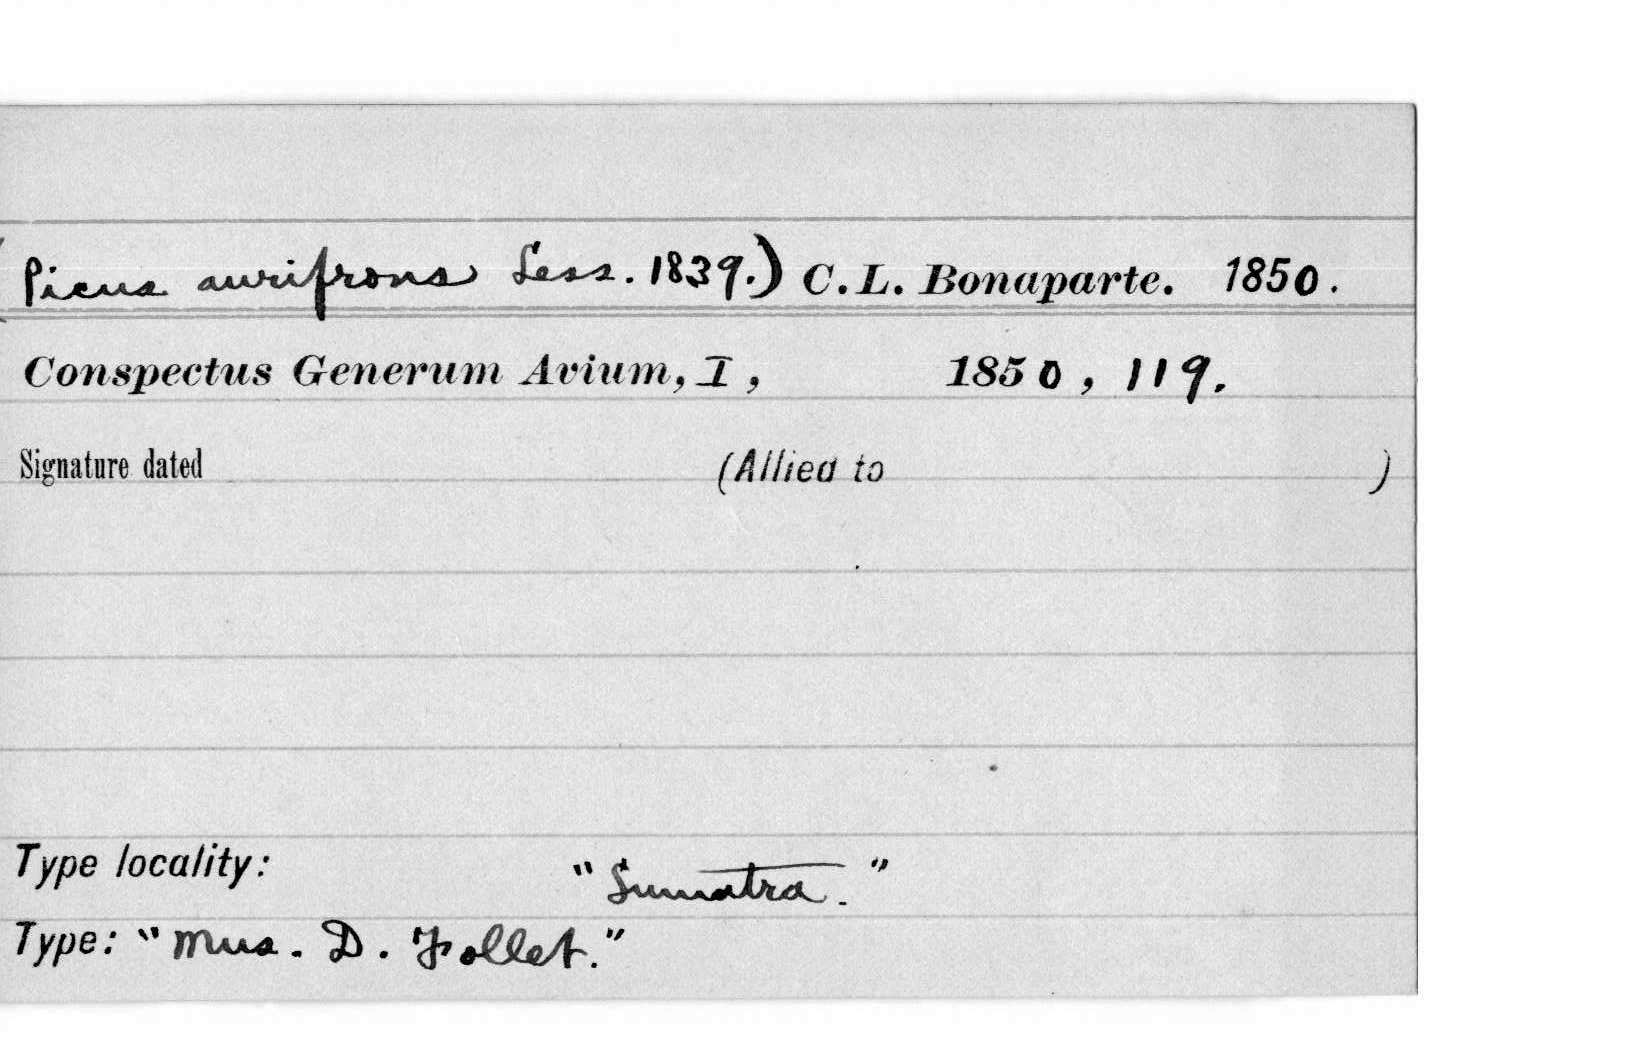 (Picus aurifrons Less. 1839.) C. L. Bonaparte. 1850.
Conspectus Generum Avium, I, 1850, 119.
Signature dated (Allied to )
Type locality: "Sumatra."
Type: "Mus. D. Follet."